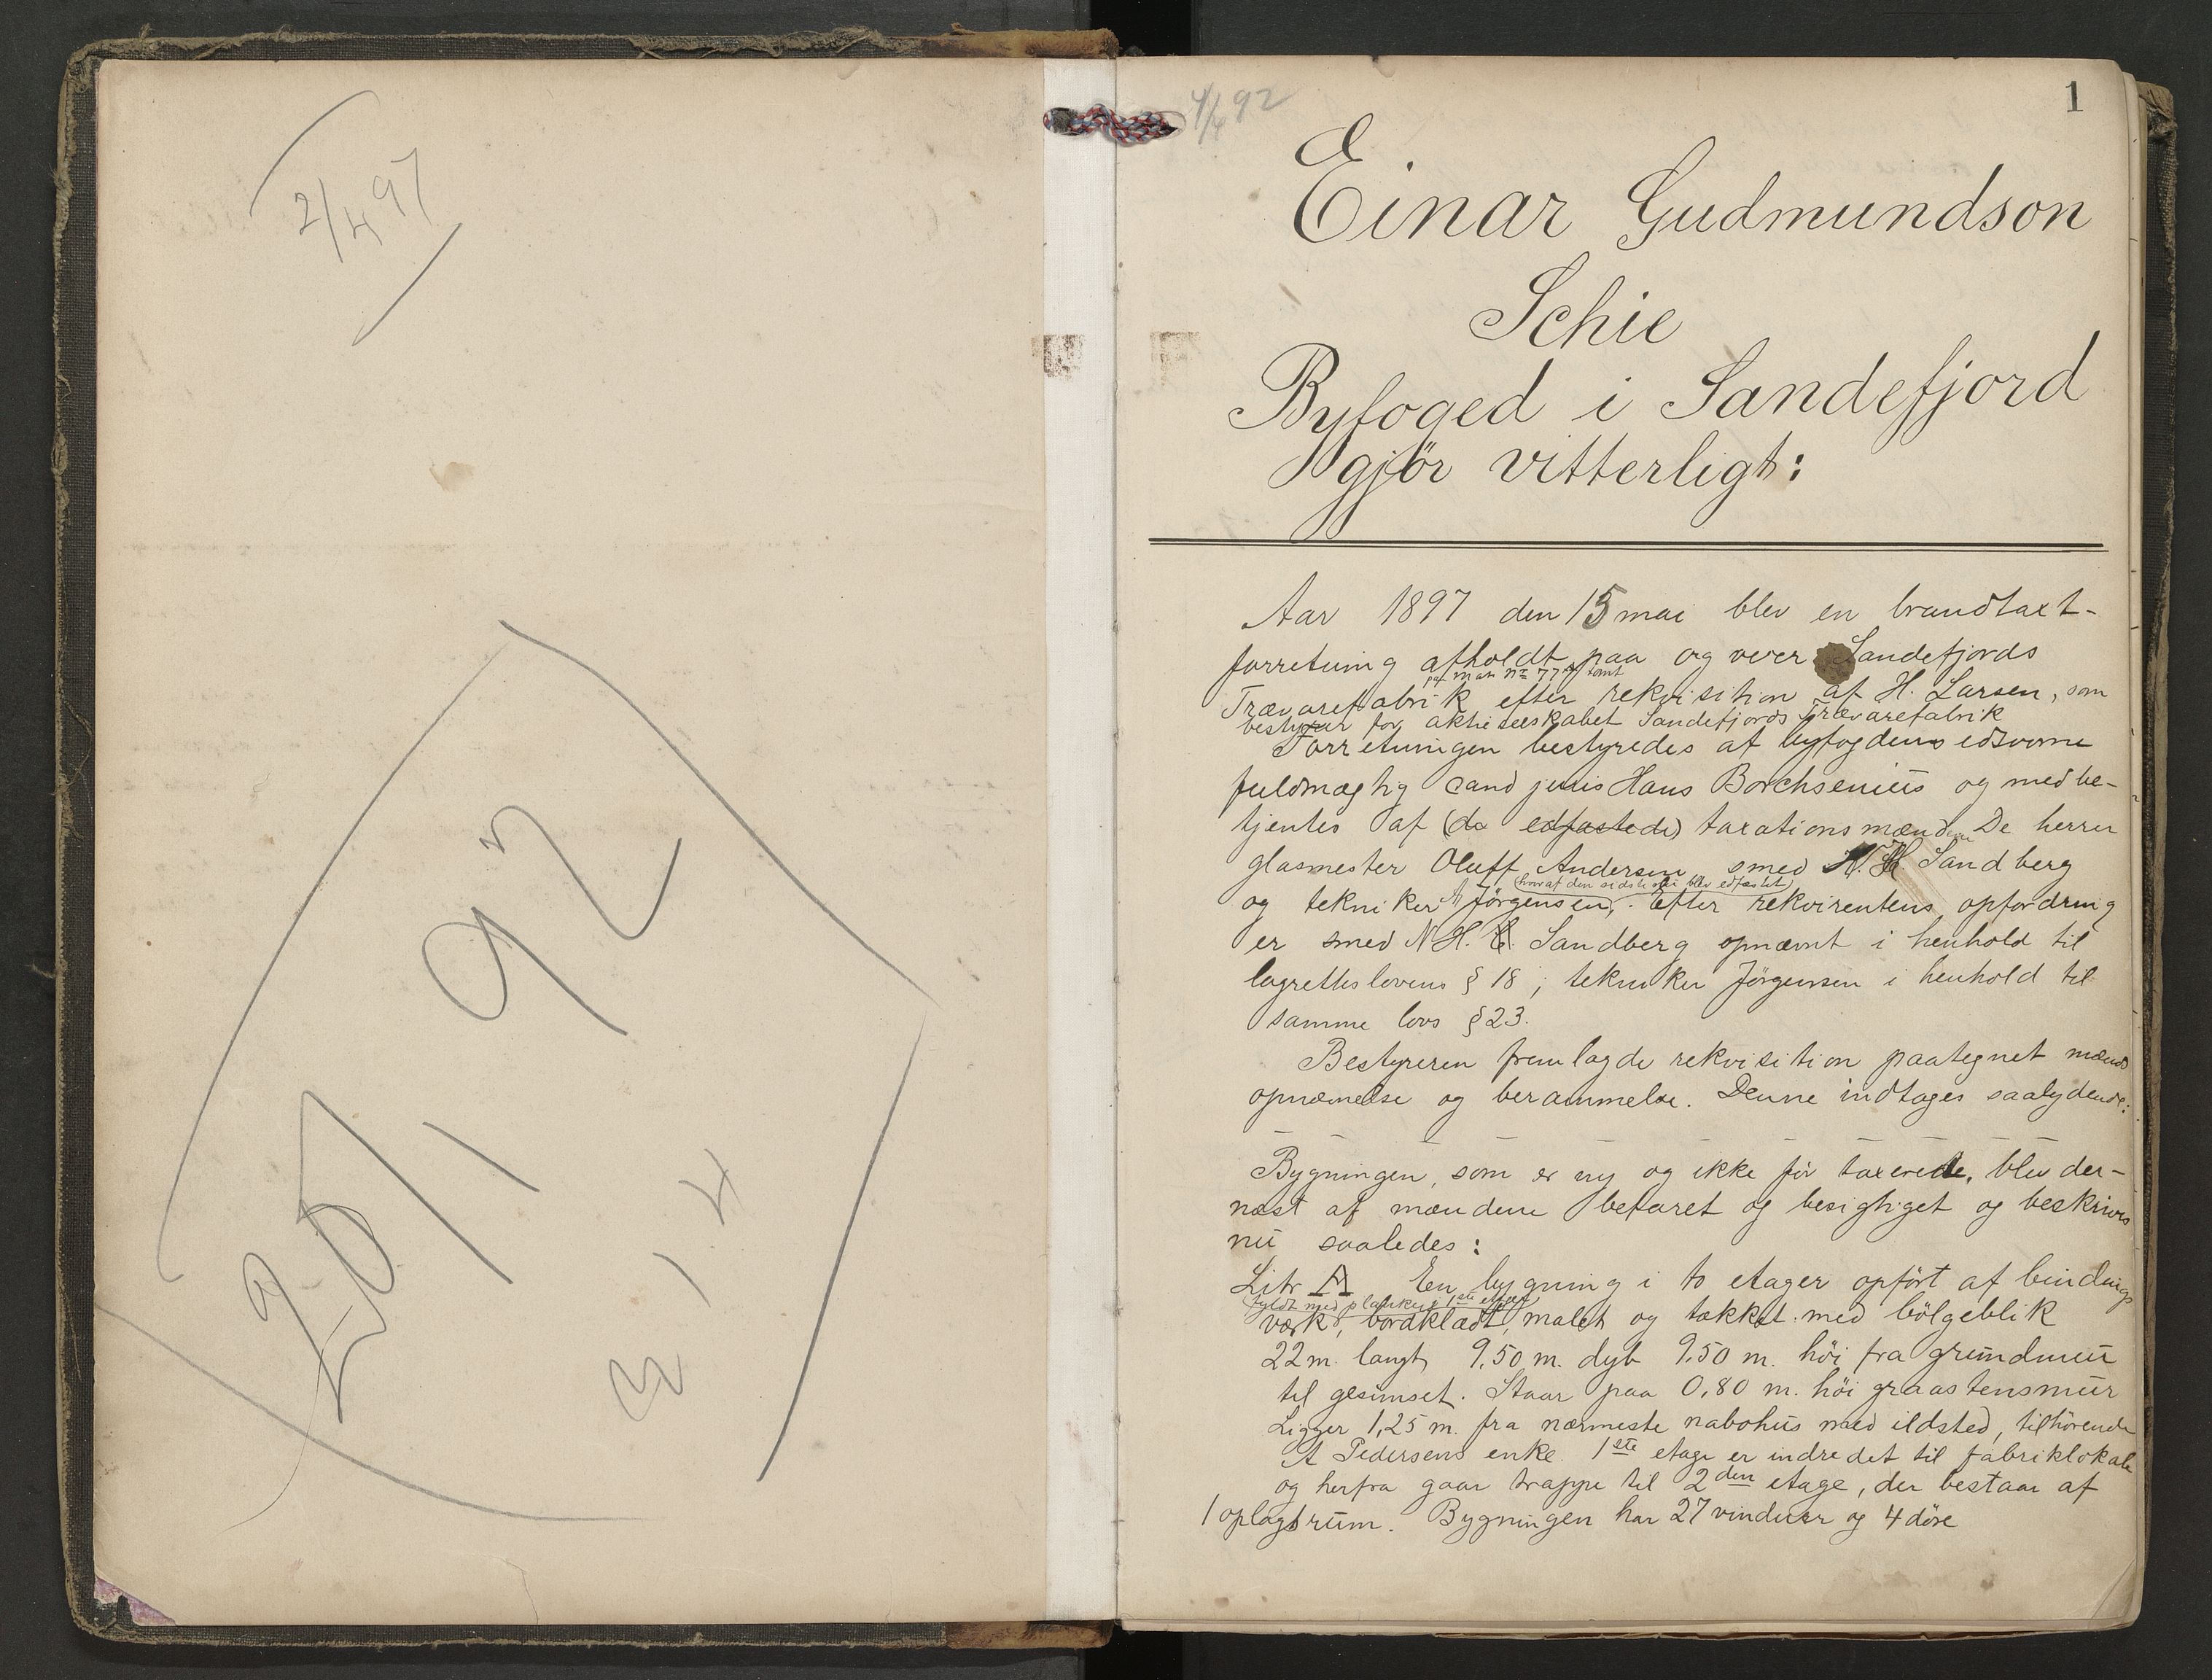 2/4 97
92
4/4 92
1
Einar Gudmundson
Schie
Byfoged i Sandefjord
gjör vitterligt:
Aar 1897 den 15 mai blev en brandtaxt-
forretning afholdt paa og over Sandefjords
paa matr nr 77 tomt
Trævarefabrik efter rekvisition af H. Larsen, som
bestyrer for aktieselskabet Sandefjords Trævarefabrik
Forretningen bestyredes af byfogdens edsvorne
fuldmægtig cand juris Hans Borchsenius og medbe-
tjentes af (de edfæstede) taxationsmænd De herrer
glasmester Oluff Andersen smed N. H. Sandberg
(hvoraf den sidste blev edfæstet)
og tekniker A Jörgensen, . Efter rekvirentens opfordring
er smed N H. Sandberg opnævnt i henhold til
lagretteslovens § 18; tekniker Jörgensen i henhold til
samme lovs § 23.
Bestyreren fremlagde rekvisition paategnet mænds
opnævnelse og berammelse. Denne indtages saalydende:
Bygningen, som er ny og ikke för taxerede, blev der-
næst af mændene befaret og besigtiget og beskrives
nu saaledes:
Litr A En bygning i to etager opfört af bindings
fyldt med planker i 1ste etage
værk, bordklædt, malet og tækket med bölgeblik
22 m. langt, 9,50 m. dyb 9,50 m. höi fra grundmur
til gesimset. Staar paa 0,80 m. höi graastensmur
Ligger 1,25 m. fra nærmeste nabohus med ildsted, tilhörende
A Pedersens enke. 1ste etage er indredet til fabriklokale
og herfra gaar trappe til 2den etage, der bestaar af
1 oplagsrum. Bygningen har 27 vinduer og 4 döre